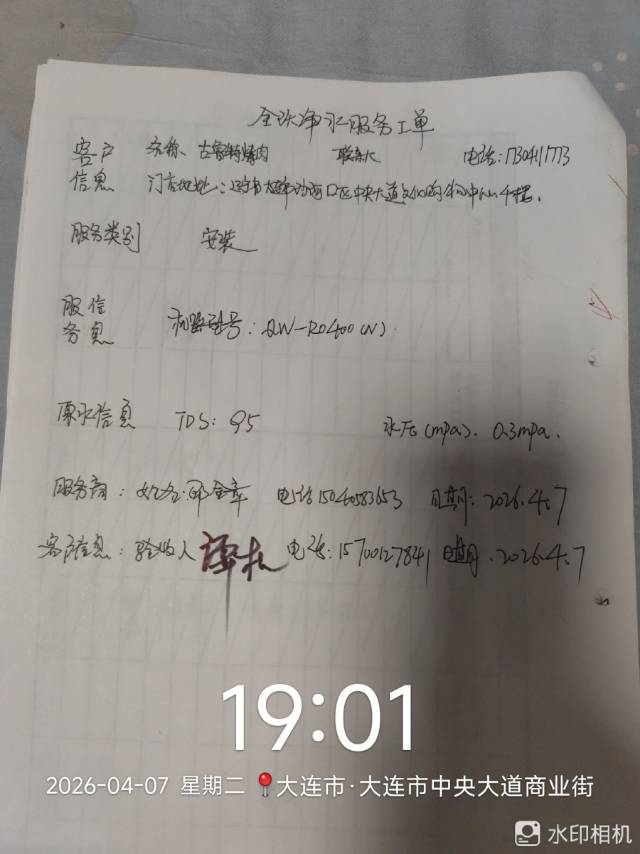 全跃净水服务工单
客户 名称、古鲁特烤肉 联系人 电话:17304111773
信息 门店地址:辽宁省大连市沙河口区中央大道文化购物中心4楼.
服务类别 安装
服信 机器型号:QW-RO400(N)
务息
原水信息 TDS:95 水压(mpa). 0.3mpa.
服务商: 电话15040583653 日期:2026.4.7
客户信息:验收人 电话:15700127841 日期.2026.4.7
19:01
2026-04-07 星期二 大连市·大连市中央大道商业街
水印相机